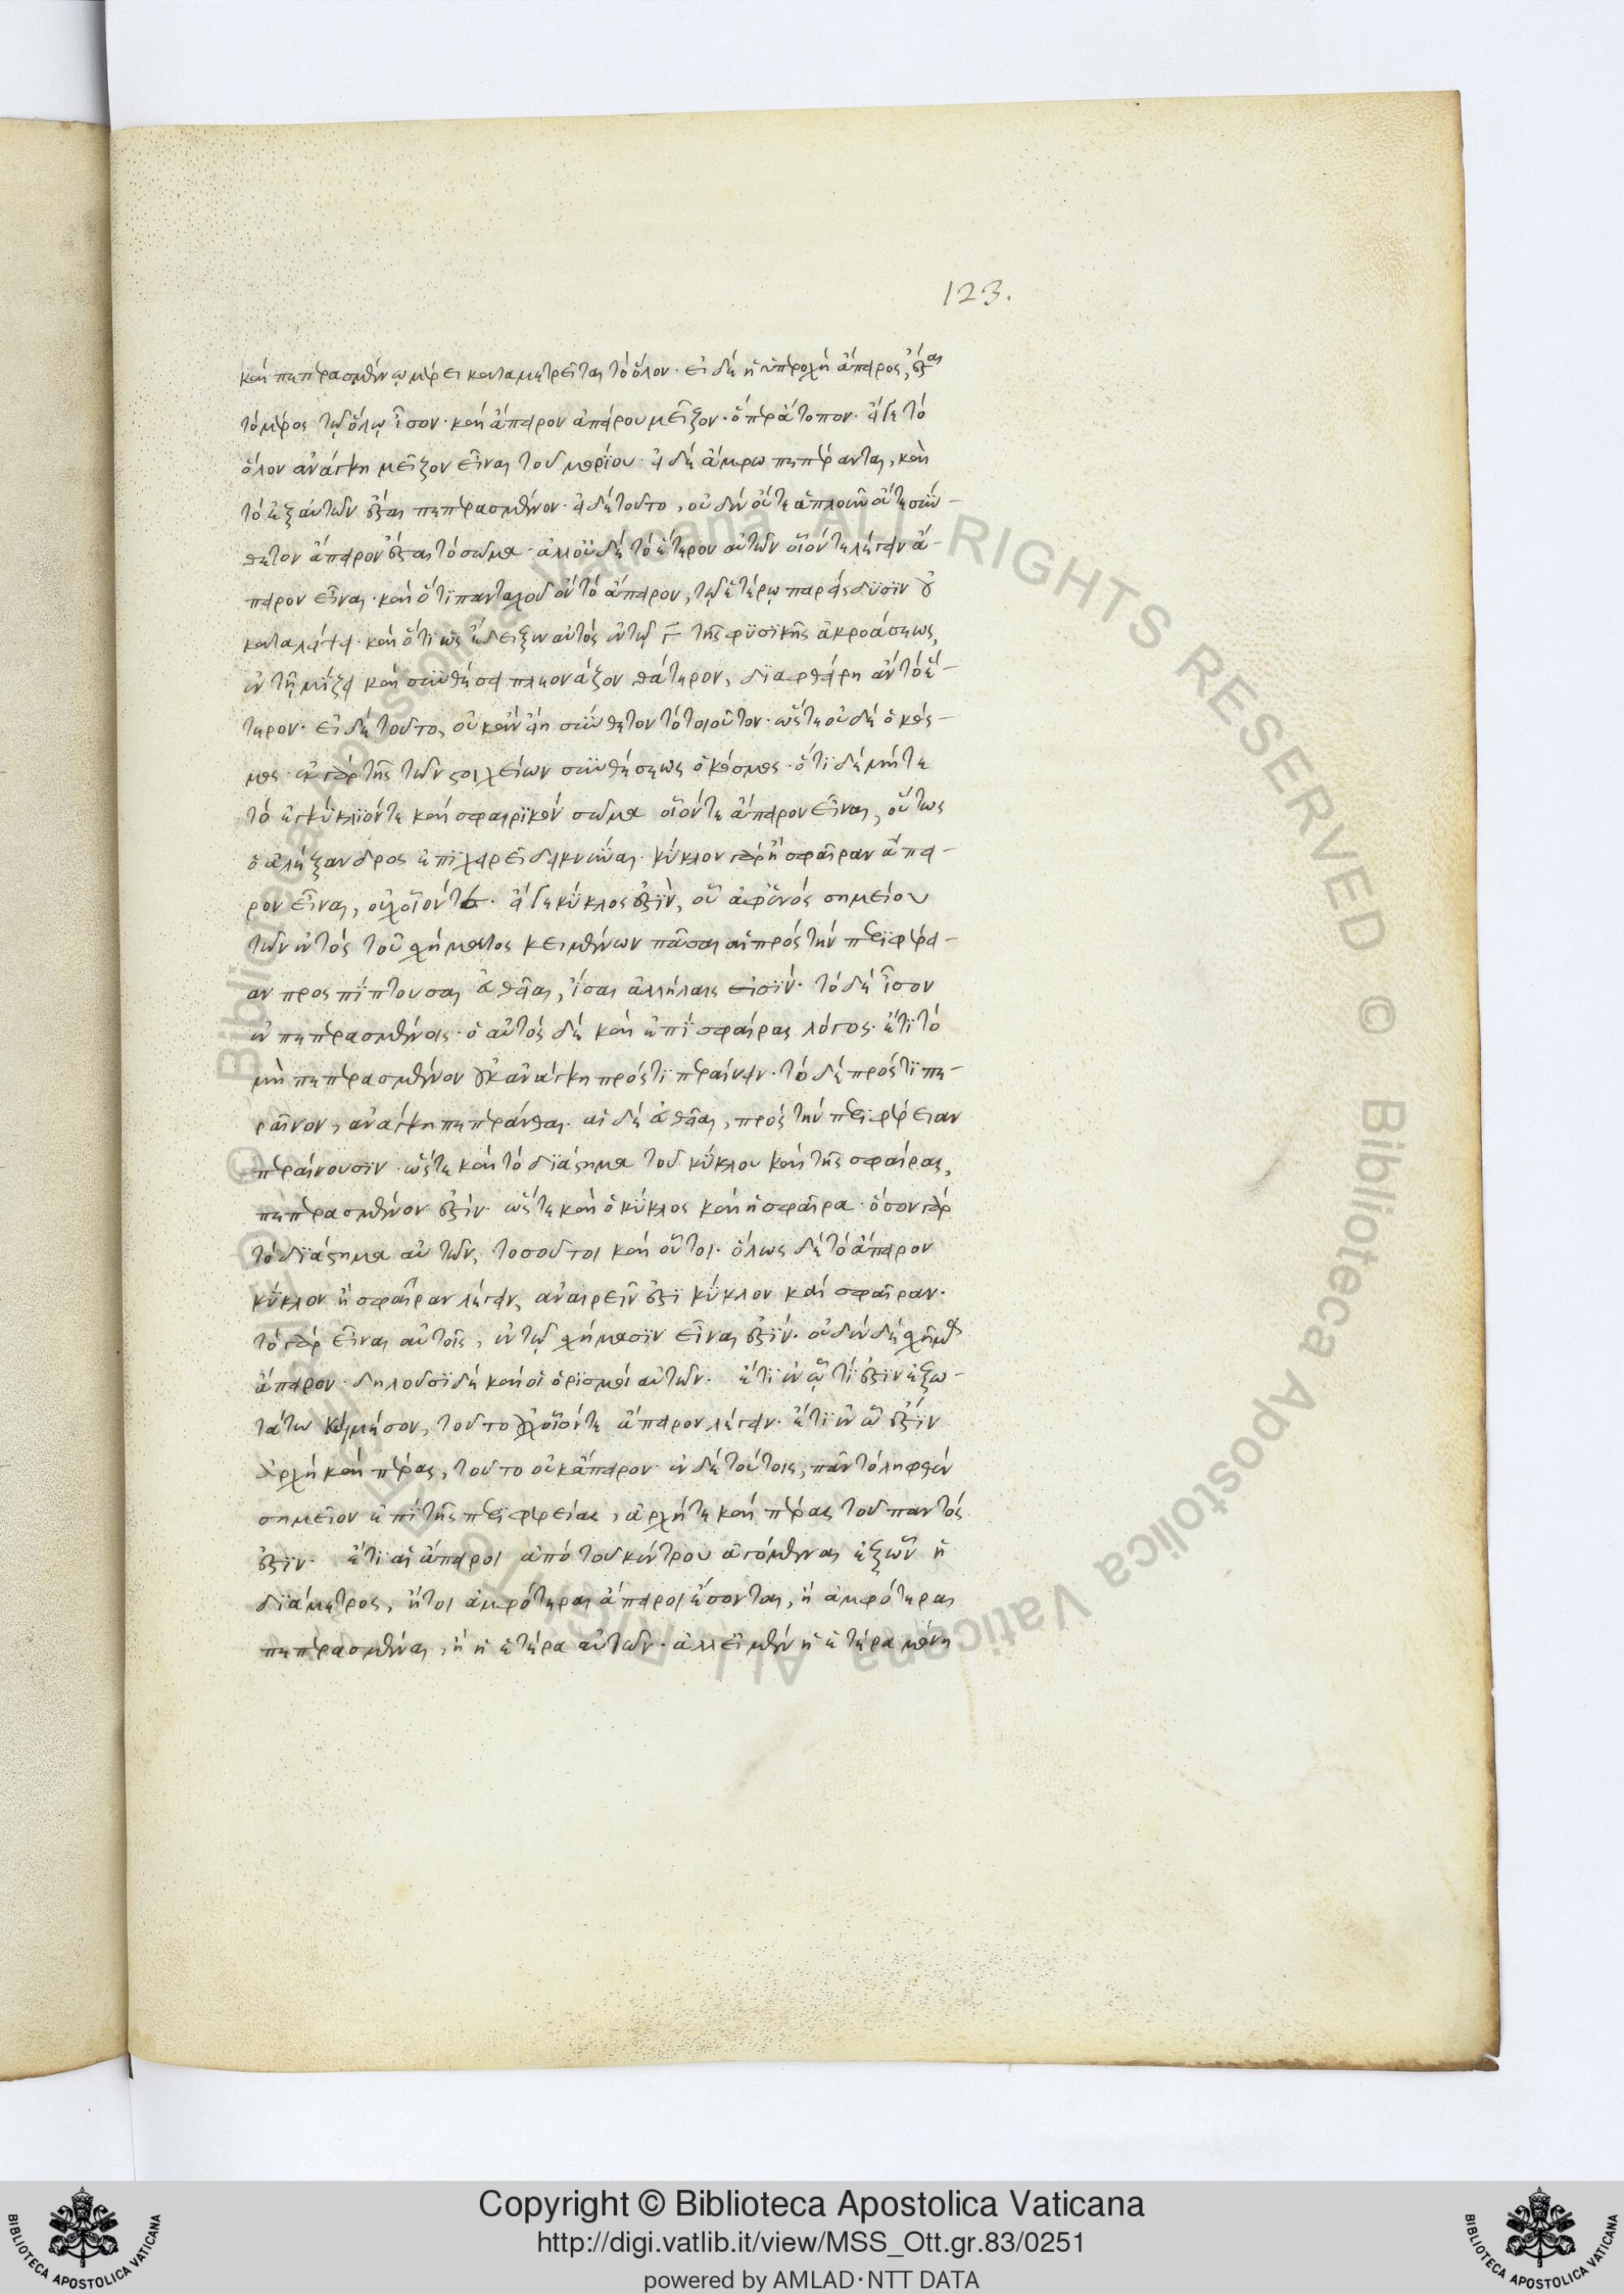 123.
καὶ πεπερασμένῳ μέρει καταμετρεῖται τὸ ὅλον· εἰ δὲ ἡ ὑπεροχὴ ἄπειρος, ἔσται
τὸ μέρος τῷ ὅλῳ ἴσον· καὶ ἄπειρον ἀπείρου μεῖζον· ὅπερ ἄτοπον· εἴγε τὸ
ὅλον ἀνάγκη μεῖζον εἶναι τοῦ μορίου· εἰ δὲ ἄμφω πεπέρανται, καὶ
τὸ ἐξ αὐτῶν ἔσται πεπερασμένον· εἰ δὲ τοῦτο, οὐδὲν οὔτε ἁπλοῦν οὔτε σύν-
θετον ἄπειρον ἔσται τὸ σῶμα· ἀλλ' οὐδὲ τὸ ἕτερον αὐτῶν οἷόν τε λέγειν ἄ-
πειρον εἶναι· καὶ ὅτι πανταχοῦ ὂν τὸ ἄπειρον, τῷ ἑτέρῳ παρείσδυσιν οὐ
καταλείψει· καὶ ὅτι ὡς ἔδειξεν αὐτὸς ἐν τῷ Γ τῆς φυσικῆς ἀκροάσεως,
ἐν τῇ μίξει καὶ συνθέσει πλεονάζον θάτερον, διαφθείρῃ ἂν τὸ ἕ-
τερον· εἰ δὲ τοῦτο, οὐκ ἂν εἴη σύνθετον τὸ τοιοῦτον· ὥστε οὐδὲ ὁ κόσ-
μος· ἐκ γὰρ τῆς τῶν στοιχείων συνθέσεως ὁ κόσμος· ὅτι δὲ μήτε
τὸ ἐγκύκλιόν τε καὶ σφαιρικὸν σῶμα οἷόν τε ἄπειρον εἶναι, οὕτως
ὁ ἀλέξανδρος ἐπιχειρεῖ δεικνύναι· κύκλον γὰρ ἢ σφαῖραν ἄπει-
ρον εἶναι, οὐχ οἷόν τε· εἴγε κύκλος ἐστὶν, οὗ ἀφ' ἑνὸς σημείου
τῶν ἐντὸς τοῦ σχήματος κειμένων πᾶσαι αἱ πρὸς τὴν περιφέρει-
αν προσπίπτουσαι εὐθεῖαι, ἴσαι ἀλλήλαις εἰσίν· τὸ δὲ ἴσον
ἐν πεπερασμένοις· ὁ αὐτὸς δὲ καὶ ἐπὶ σφαίρας λόγος· ἔτι τὸ
μὴ πεπερασμένον οὐκ ἀνάγκη πρός τι περαίνειν· τὸ δὲ πρός τι πε-
ραῖνον, ἀνάγκη πεπεράνθαι· αἱ δὲ εὐθεῖαι, πρὸς τὴν περιφέρειαν
περαίνουσιν· ὥστε καὶ τὸ διάστημα τοῦ κύκλου καὶ τῆς σφαίρας,
πεπερασμένον ἐστίν· ὥστε καὶ ὁ κύκλος καὶ ἡ σφαῖρα· ὅσον γὰρ
τὸ διάστημα αὐτῶν, τοσοῦτοι καὶ οὗτοι· ὅλως δὲ τὸ ἄπειρον
κύκλον ἢ σφαῖραν λέγειν, ἀναιρεῖν ἐστι κύκλον καὶ σφαῖραν·
τὸ γὰρ εἶναι αὐτοῖς, ἐν τῷ σχήμασιν εἶναι ἐστίν· οὐδὲν δὲ σχῆμα
ἄπειρον· δηλοῦσι δὲ καὶ οἱ ὁρισμοὶ αὐτῶν· ἔτι ἐν ᾧ τί ἐστιν ἐξω-
τάτω καὶ μέσον, τοῦτο οὐχ οἷόν τε ἄπειρον λέγειν· ἔτι ἐν ᾧ ἐστὶν
ἀρχὴ καὶ πέρας, τοῦτο οὐκ ἄπειρον· ἐν δὲ τούτοις, πᾶν τὸ ληφθὲν
σημεῖον ἐπὶ τῆς περιφερείας, ἀρχή τε καὶ πέρας τοῦ παντός
ἐστιν· ἔτι αἱ ἄπειροι ἀπὸ τοῦ κέντρου ἀγόμεναι ἐξ ὧν ἡ
διάμετρος, ἤτοι ἀμφότεραι ἄπειροι ἔσονται, ἢ ἀμφότεραι
πεπερασμέναι, ἢ ἡ ἑτέρα αὐτῶν· ἀλλ' εἰ μὲν ἡ ἑτέρα μόνη
© Biblioteca Apostolica Vaticana ALL RIGHTS RESERVED © Biblioteca Apostolica Vaticana ALL RIGHTS RESERVED
Copyright © Biblioteca Apostolica Vaticana
http://digi.vatlib.it/view/MSS_Ott.gr.83/0251
powered by AMLAD·NTT DATA
BIBLIOTECA APOSTOLICA VATICANA
BIBLIOTECA APOSTOLICA VATICANA